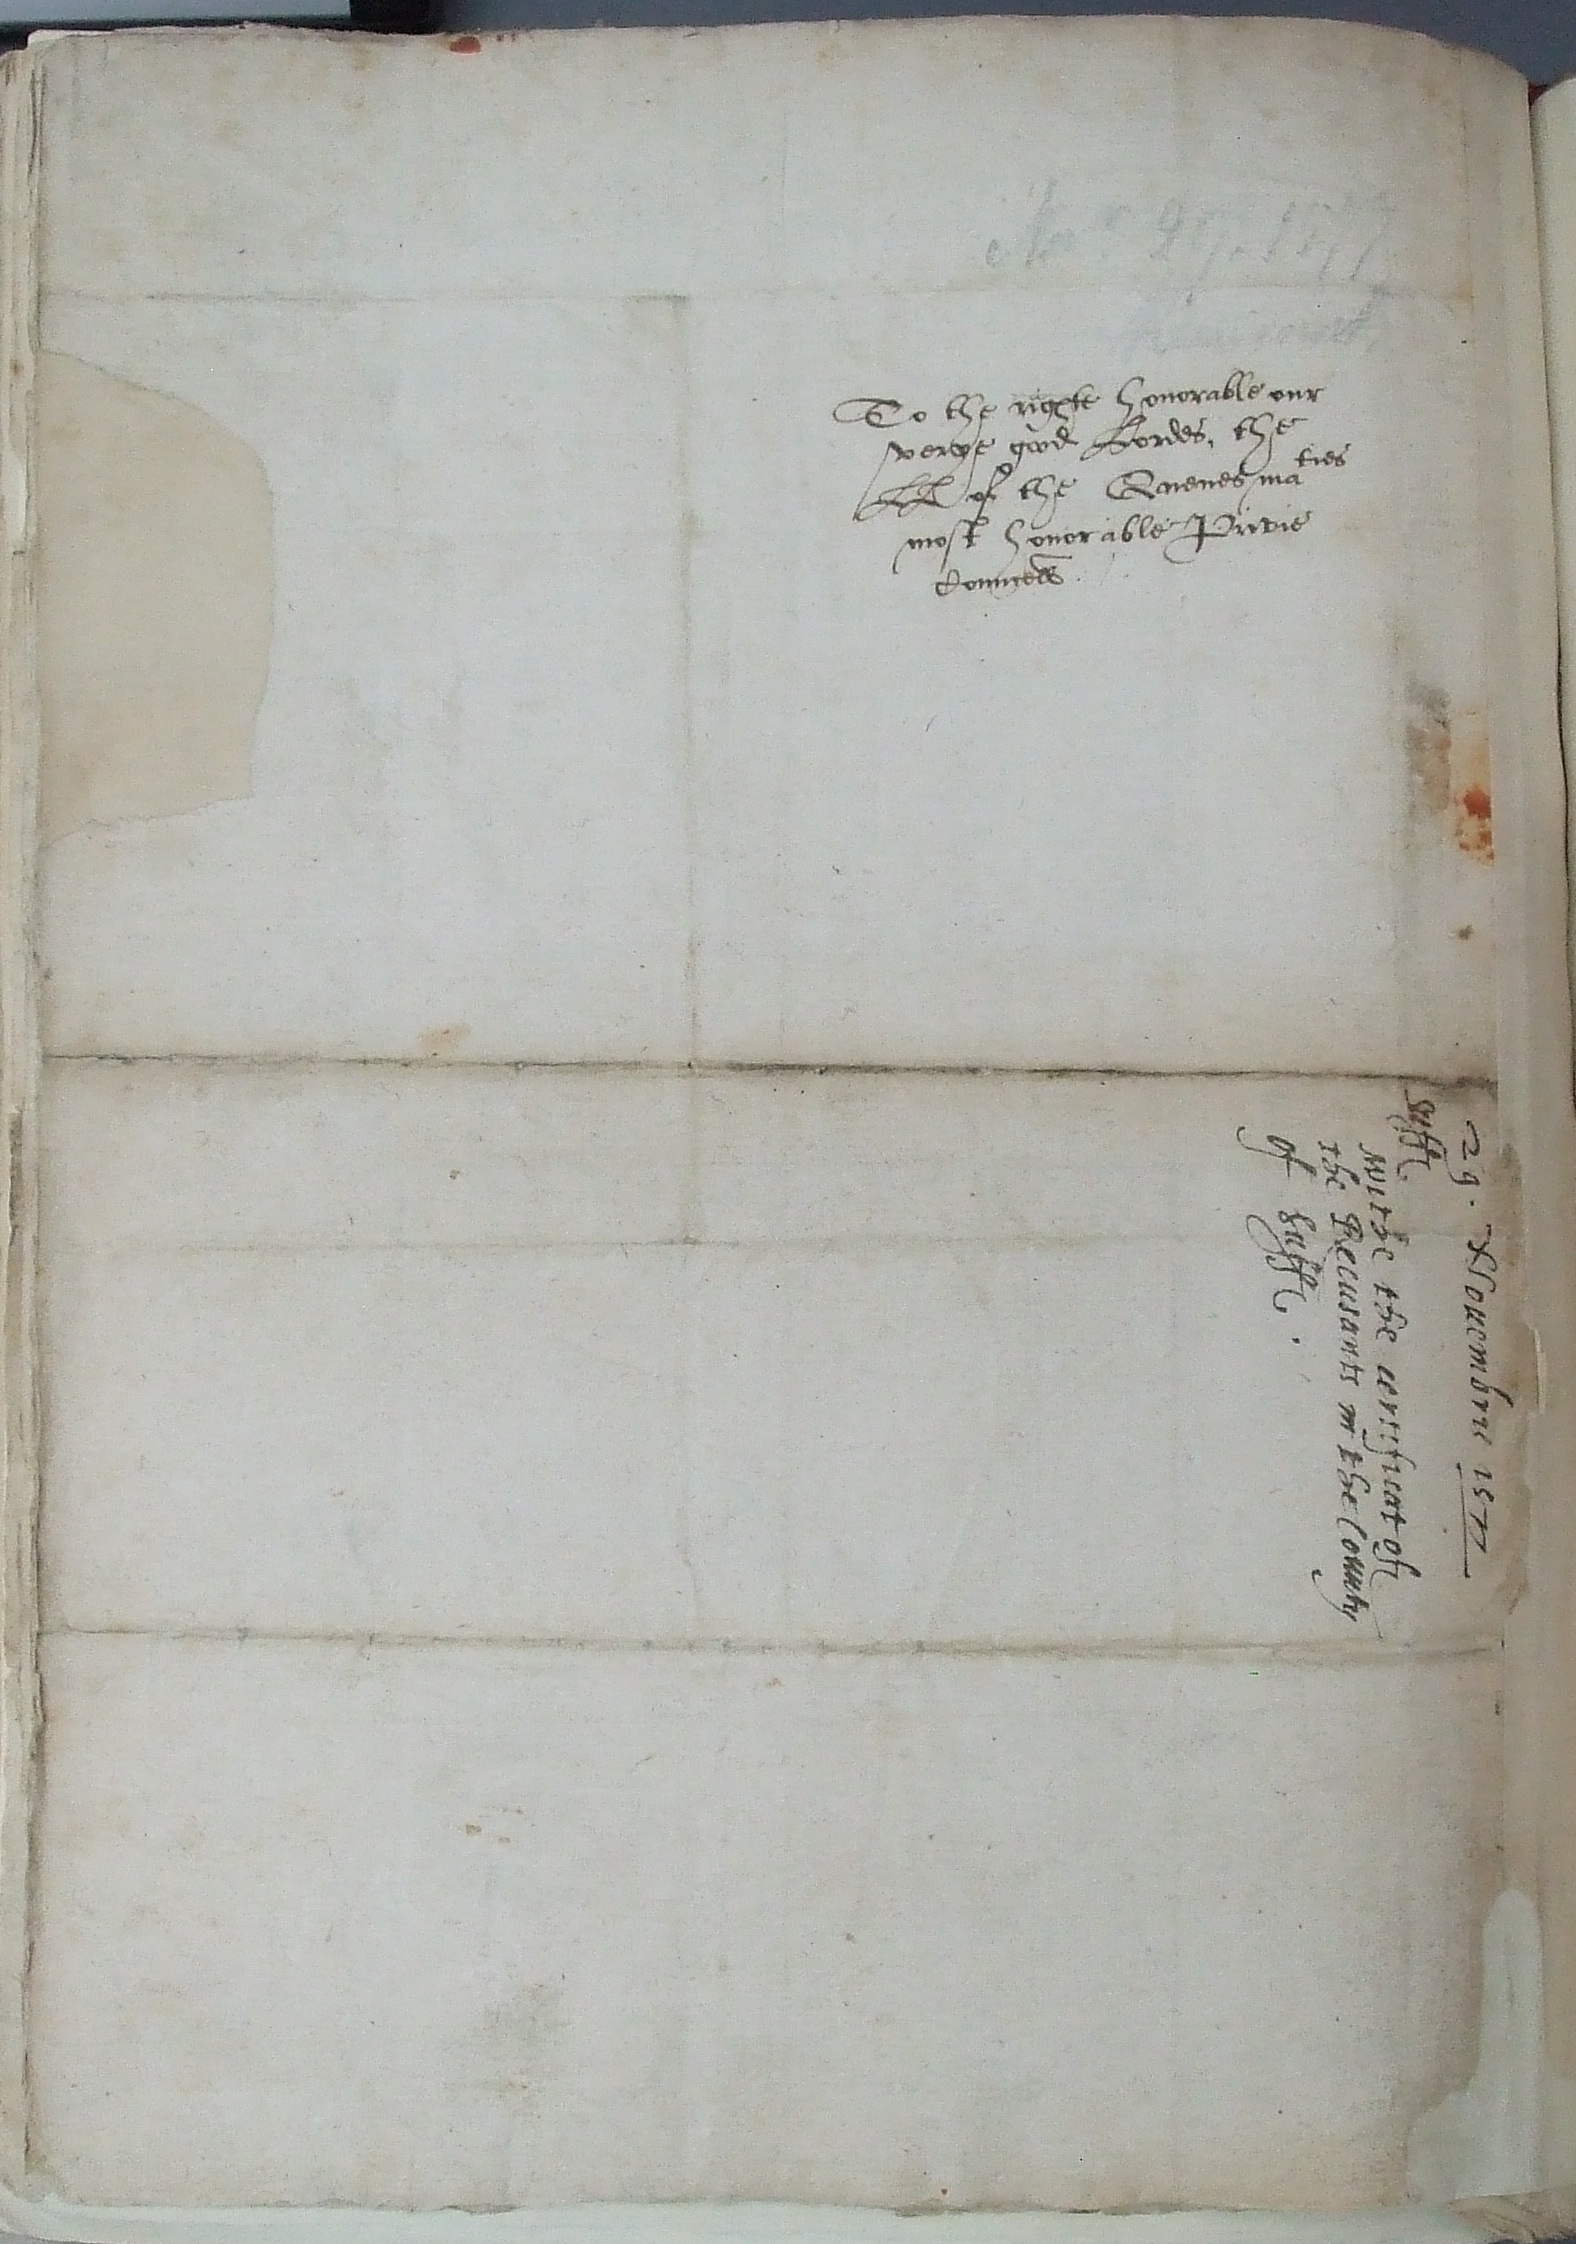 To the righte honorable our
verye good Lordes, the
LL of the Quenes maties
most honorable Privie
Counsell.
29. Nouembris 1577
Suff.
with the certificat of
the Recusants in the County
of Suff.